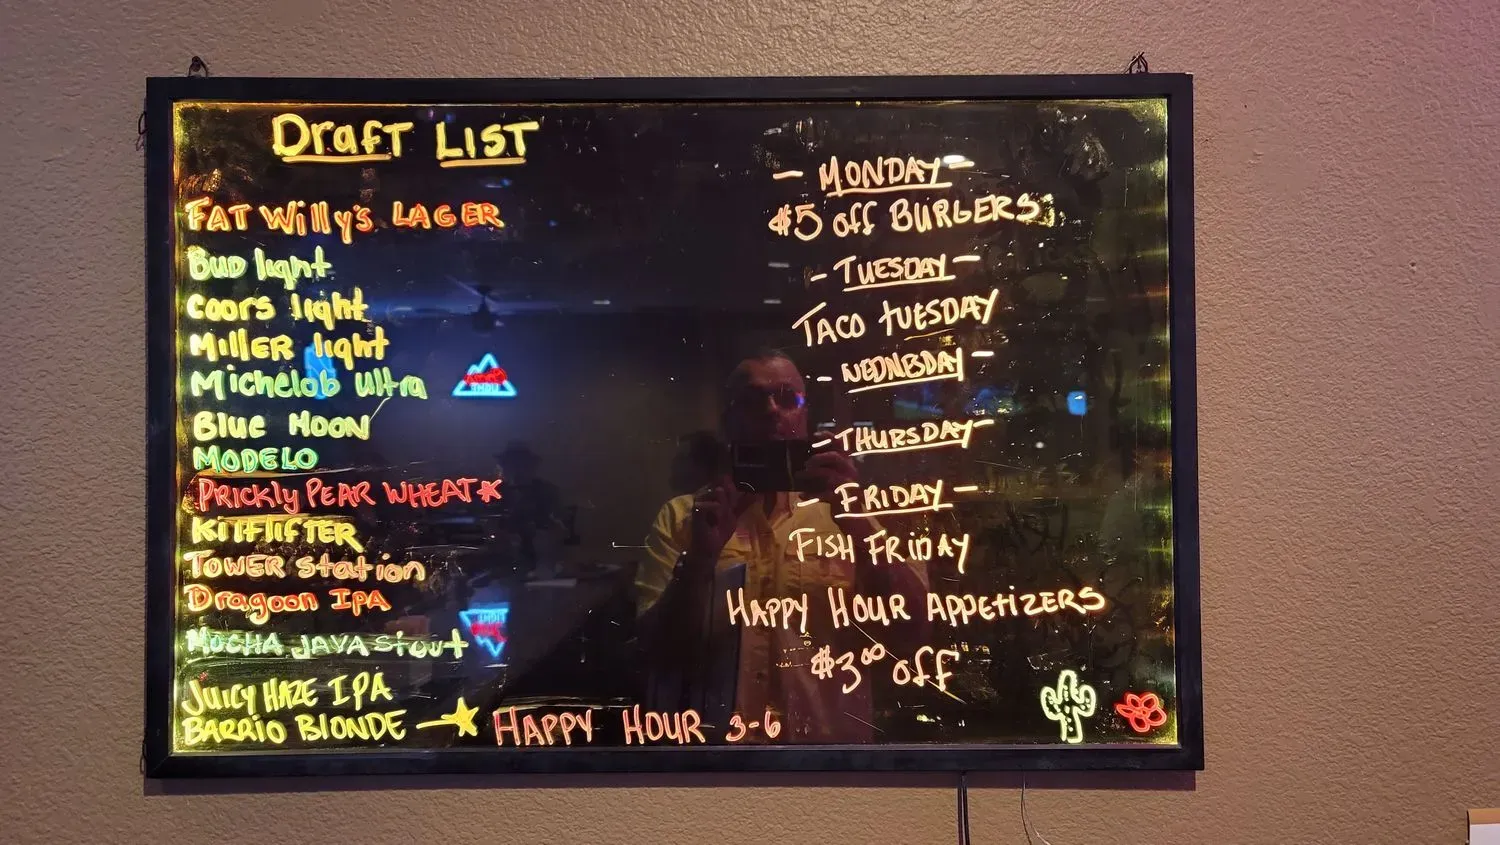 Draft LIST
FAT Willy's LAGER
Bud light
Coors light
MillER light
Michelob Ultra
Blue MOON
MODELO
PRICKly PEAR WHEAT
KiltliftER
TOWER Station
Dragoon IPA
MOCHA JAVA Stout
JUICY HAZE IPA
BARRIO BLONDE
HAPPY HOUR 3-6
- MONDAY -
$5 off BURGERS
- TUESDAY -
TACO tUESDAY
- WEDNESDAY -
- THURSDAY -
- FRIDAY -
FISH FRiDAY
HAPPY HOUR APPETiZERS
$3.00 off